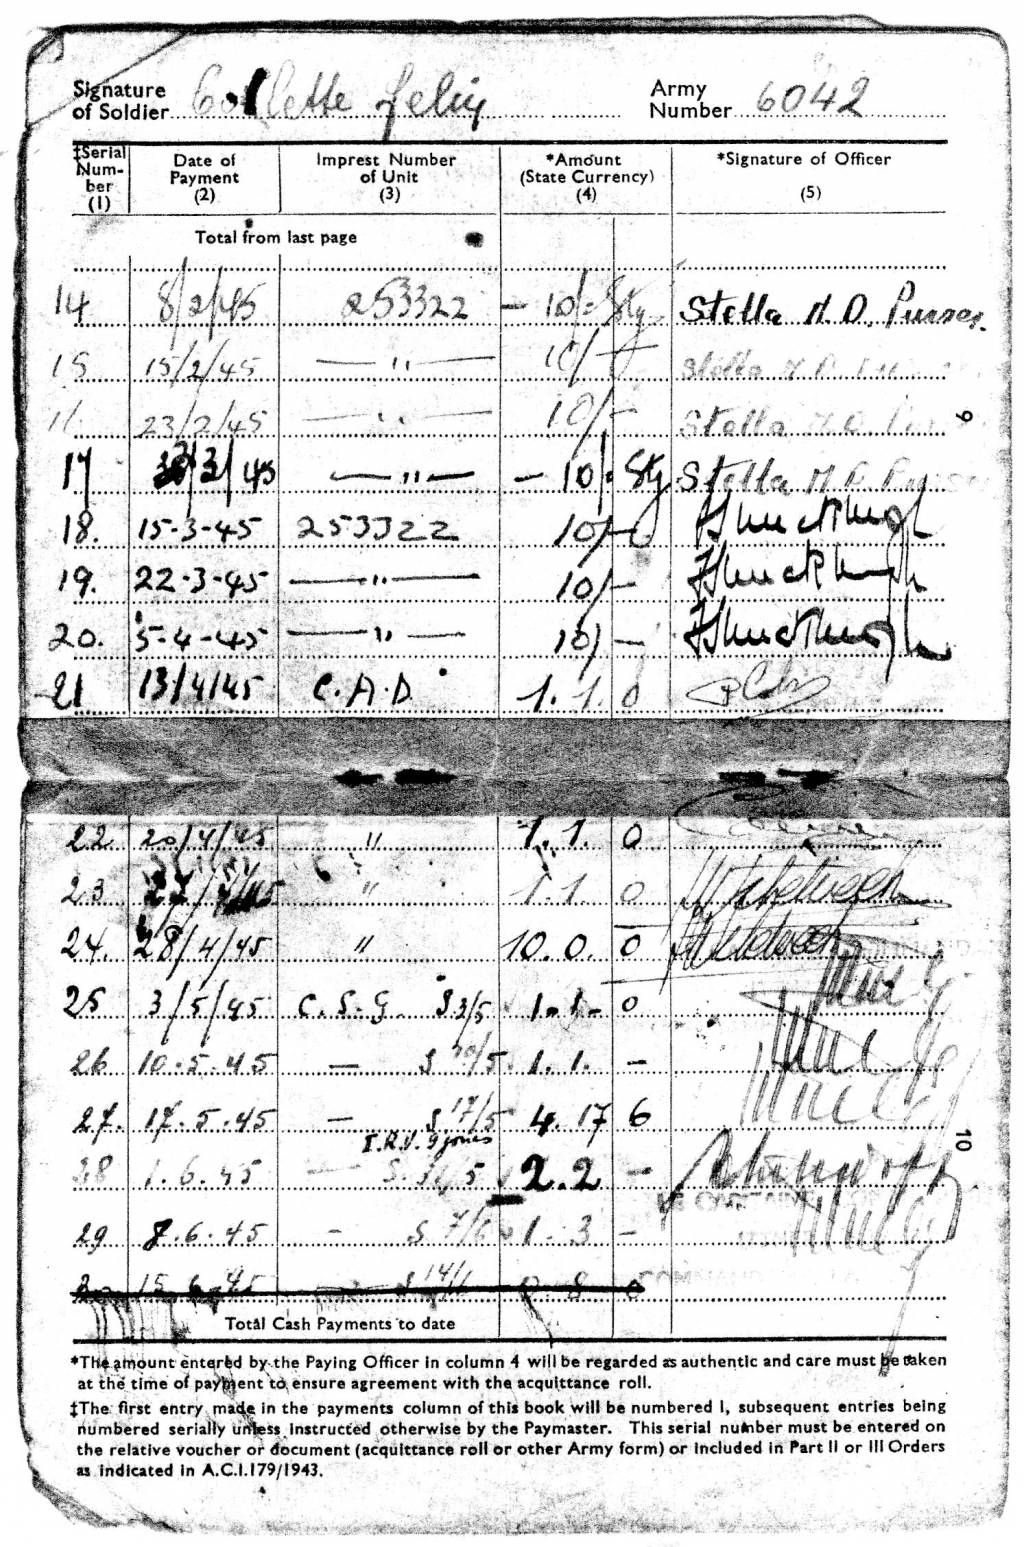 Signature of Soldier Collette Army Number 6042
‡Serial Num-ber (1) Date of Payment (2) Imprest Number of Unit (3) *Amount (State Currency) (4) *Signature of Officer (5)
Total from last page
14 8/2/45 253322 - 10/- Stg Stella M D. Purser.
15 15/2/45 — " — 10/- Stella
16 23/2/45 — " — 10/- Stella
9
17 /3/45 — " — - 10/- Stg Stella M D
18. 15-3-45 253322 10/-
19. 22-3-45 — " — 10/-
20. 5-4-45 — " — 10/-
21 13/4/45 C.A.D. 1. 1. 0
22. 20/4/45 " 1. 1. 0
23 " 1. 1. 0
24. 28/4/45 " 10. 0. 0
25 3/5/45 C.S.G. S 3/5 1. 1. 0
26 10.5.45 — S 10/5 1. 1. -
27. 17.5.45 — S 17/5 4. 17 6
10
28 1.6.45 — S. 31/5 2. 2 -
29 8.6.45 - S 7/6 1. 3 -
30 15.6.45 — S 14/6 0. 8. 0
Total Cash Payments to date
*The amount entered by the Paying Officer in column 4 will be regarded as authentic and care must be taken
at the time of payment to ensure agreement with the acquittance roll.
‡The first entry made in the payments column of this book will be numbered 1, subsequent entries being
numbered serially unless instructed otherwise by the Paymaster. This serial number must be entered on
the relative voucher or document (acquittance roll or other Army form) or included in Part II or III Orders
as indicated in A.C.I.179/1943.